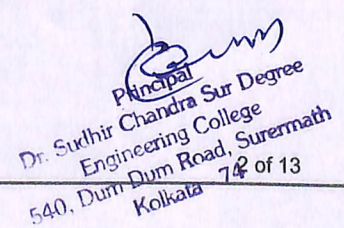 Principal
Dr. Sudhir Chandra Sur Degree
Engineering College
540, Dum Dum Road, Surermath
Kolkata 74
2 of 13